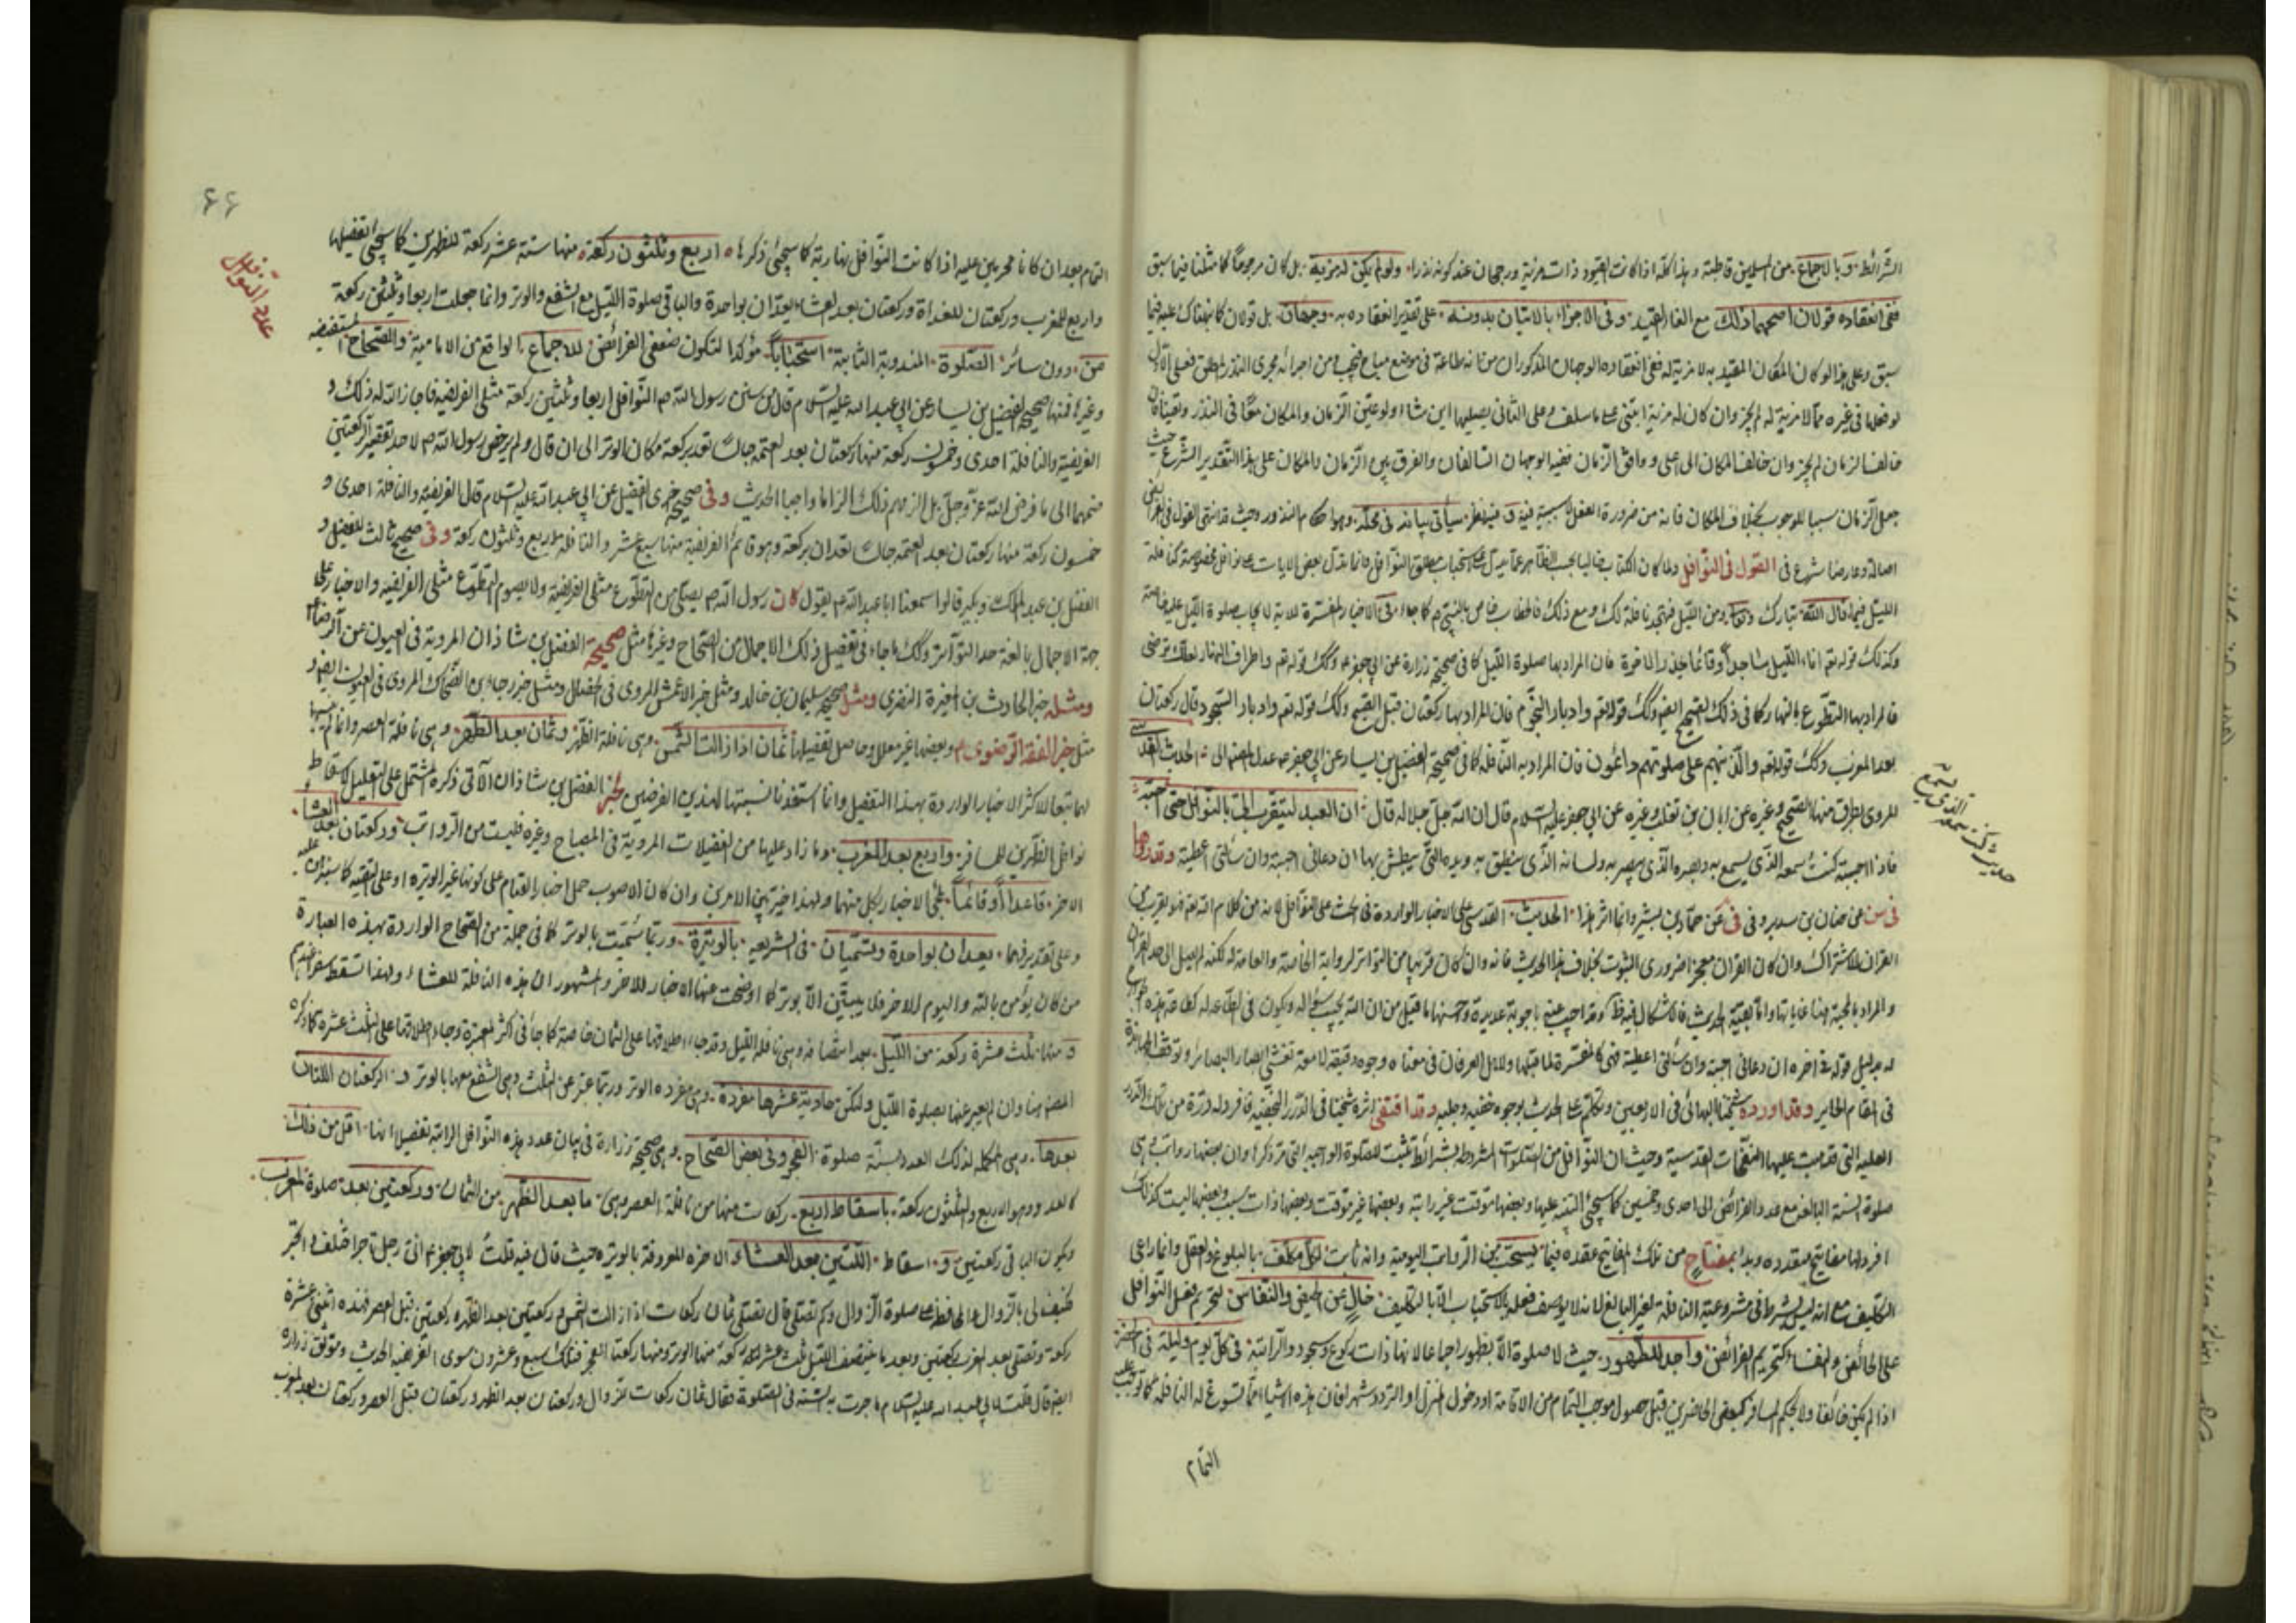 الشرائط وبالاجماع من المسلمين قاطبة وهذا كله اذا كانت القيود ذات مزية ورجحان عند كونه نذرا ولو لم يكن له مزية بل كان مرجوحا كما مثلنا فيما سبق
ففي انعقاده قولان اصحهما ذلك مع الغاء القيد وفي الاجزاء بالاتيان بدونه على تقدير انعقاده به وجهان بل قولان كما نبهناك عليه فيما
سبق وعلى هذا لو كان المكان المقيد به لا مزية له ففي انعقاده الوجهان المذكوران من انه طاعة في موضع مباح فيجب ومن اجرائه مجرى النذر المطلق فعلى الاول
لو فعلها في غيره مما لا مزية له لم يجز وان كان له مزية ابتنى على ما سلف وعلى الثاني يصليها اين شاء ولو عين الزمان والمكان معا في النذر وتعينا فان
خالف الزمان لم يجز وان خالف المكان الى اعلى ووافق الزمان ففيه الوجهان السالفان والفرق بين الزمان والمكان على هذا التقدير الشرع حيث
جعل الزمان سببا للوجوب بخلاف المكان فانه من ضرورة الفعل لا سببية فيه وفيه نظر سيأتي بيانه في محله وهو احكام النذور وحيث قد انتهى القول في الفرائض
اصالة وعارضا شرع في القول في النوافل ولما كان الكتاب خاليا بحسب الظاهر عما يدل على استحباب مطلق النوافل وانما يدل بعض الايات على نوافل مخصوصة كنافلة
الليل فيما قال الله تبارك وتعالى ومن الليل فتهجد به نافلة لك ومع ذلك فالخطاب خاص بالنبي ص كما جاء في الاخبار المفسرة للاية لايجاب صلوة الليل عليه خاصة
وكذلك قوله تع اناء الليل ساجدا وقائما يحذر الاخرة فان المراد بها صلوة الليل كما في صحيحة زرارة عن ابي جعفر ع وكذلك قوله تع واطراف النهار لعلك ترضى
فالمراد بها التطوع بالنهار كما في ذلك الصحيح ايضا وكذلك قوله تع وادبار النجوم فان المراد بها ركعتان قبل الصبح وكذلك قوله تع وادبار السجود قال ركعتان
بعد المغرب وكذلك قوله تع والذين هم على صلوتهم دائمون فان المراد به النافلة كما في صحيحة الفضيل بن يسار عن ابي جعفر ع عدل المصنف الى الحديث القدسي
المروي بطرق منها الصحيح وغيره عن ابان بن تغلب وغيره عن ابي جعفر عليه السلام قال ان الله جل جلاله قال ان العبد ليتقرب الي بالنوافل حتى احبه
فاذا احببته كنت سمعه الذي يسمع به وبصره الذي يبصر به ولسانه الذي ينطق به ويده التي يبطش بها ان دعاني اجبته وان سألني اعطيته وقد رواها
في سن عن حنان بن سدير وفي في عن حماد بن بشير وانما اثر هذا الحديث القدسي على الاخبار الواردة في الحث على النوافل لانه من كلام الله تع فهو يقرب من
القران للاشتراك وان كان القران معجزا ضروري الثبوت بخلاف هذا الحديث فانه وان كان قريبا من التواتر لرواية الخاصة والعامة له لكنه لم يصل الى حد القران
والمراد بالمحبة هنا غاياتها واما بقية الحديث فالاشكال فيه ظ وقد اجيب عنه باجوبة عديدة واحسنها ما قيل من ان الله يجيب سؤاله ويكون في
له بدليل قوله في اخره ان دعاني اجبته وان سألني اعطيته فهي كالمفسرة لما قبلها ولاهل العرفان في معناه وجوه دقيقة لامعة تغشي ابصار البصائر
في المقام الحاير وقد اورده شيخنا البهائي في الاربعين وتكلم على الحديث بوجوه خفية وجلية وقد اقتفى اثره شيخنا في الدرر النجفية فافرد له درة من تلك الدرر
العلية التي قد هبت عليها النفحات القدسية وحيث ان النوافل من الصلوات المشروطة بشرائط تثبت للصلوة الواجبة التي مر ذكرها وان بعضها رواتب وهي
صلوة السنة البالغة مع عدد الفرائض الى احدى وخمسين كما سيجئ التنبيه عليها وبعضها موقت غير راتبة وبعضها غير موقت وبعضها ذات سبب وبعضها ليست كذلك
افرد لها مفاتيح متعدده وبدأ بمفتاح من تلك المفاتيح عقده فيما يستحب من الرواتب اليومية وانه ثابت لكل مكلف بالبلوغ والعقل وانما راعى
التكليف مع انه ليس شرطا في مشروعية النافلة لغير البالغ لانه لا يوصف فعله بالاستحباب الا بالتكليف خال عن الحيض والنفاس لتحريم فعل النوافل
على الحائض والنفساء كتحريم الفرائض واجد للطهور حيث لا صلوة الا بطهور اجماعا لانها ذات ركوع وسجود والراتبة في كل يوم وليلة في الحضر
اذا لم يكن خائفا ولا بحكم المسافر كبعض الحاضرين قبل حصول موجب التمام من الاقامة او دخول المنزل او التردد شهرا فان هذه الاشياء مما تسوغ له النافلة كما توجب عليه
التمام
حديث كنت سمعه الذي يسمع به
٦٦
عدد النوافل
التمام بعد ان كانا محرمين عليه اذا كانت النوافل نهارية كما سيجئ ذكرها اربع وثلثون ركعة منها ستة عشر ركعة للظهرين كما سيجئ تفصيلها
واربع للمغرب وركعتان للغداة وركعتان بعد العشاء يعدان بواحدة والباقي صلوة الليل مع الشفع والوتر وانما جعلت اربعا وثلثين ركعة
من دون سائر الصلوة المندوبة الثابتة استحبابا مؤكدا لتكون ضعفي الفرائض للاجماع الواقع من الامامية والصحاح المستفيضه
وغيرها فمنها صحيحة الفضيل بن يسار عن ابي عبد الله عليه السلام قال من سنن رسول الله ص النوافل اربعا وثلثين ركعة مثلي الفريضه فاجاز الله له ذلك و
الفريضة والنافلة احدى وخمسون ركعة منها ركعتان بعد العتمة جالسا تعد بركعة مكان الوتر الى ان قال ولم يرخص رسول الله ص لاحد تقصير الركعتين
ضمهما الى ما فرض الله عز وجل بل الزمهم ذلك الزاما واجبا الحديث وفي صحيحة اخرى للفضيل عن ابي عبد الله عليه السلام قال الفريضه والنافلة احدى و
خمسون ركعة منها ركعتان بعد العتمة جالسا تعدان بركعة وهو قائم الفريضة منها سبع عشر والنافلة اربع وثلثون ركعة وفي صحيح ثالث للفضيل و
الفضل بن عبد الملك وبكير قالوا سمعنا ابا عبد الله ع يقول كان رسول الله ص يصلي من التطوع مثلي الفريضة ويصوم من التطوع مثلي الفريضة والاخبار على
جهة الاجمال بالغة حد التواتر وكذلك ما جاء في تفصيل ذلك الاجمال من الصحاح وغيرها مثل صحيحة الفضل بن شاذان المروية في العيون عن الرضا ع
ومثل خبر الحارث بن المغيرة النصري ومثل صحيحة سليمان بن خالد ومثل خبر الاعمش المروي في الخصال ومثل خبر رجاء بن الضحاك المروي في العيون ايضا و
مثل خبر الفقه الرضوي وبعضها غير معلل وحاصل تفصيلها ثمان اذا زالت الشمس وهي نافلة الظهر وثمان بعد الظهر وهي نافلة العصر وانما
لمتابعة اكثر الاخبار الواردة بهذا التفصيل وانما استفدنا نسبتها لهذين الفرضين لخبر الفضل بن شاذان الآتي ذكره المشتمل على التعليل لاسقاط
نوافل الظهرين للمسافر واربع بعد المغرب وما زاد عليها من الغفيلات المروية في المصباح وغيره فليست من الرواتب وركعتان بعد العشاء
الاخر قاعدا او قائما لمجئ الاخبار بكل منهما ولهذا خير بين الامرين وان كان الاصوب حمل اخبار القيام على كونها غير الوتيره او على التقيه كما سننبه عليه
وعلى تقديرهما يعدان بواحدة وتسميان في الشريعه بالوتيرة وربما سميت بالوتر كما في جملة من الصحاح الواردة بهذه العبارة
من كان يؤمن بالله واليوم الاخر فلا يبيتن الا بوتر كما اوضحت عنها الاخبار الاخر والمشهور ان هذه النافلة للعشاء ولهذا تسقط سفرا عندهم
ومنها ثلث عشرة ركعة من الليل بعد انتصافه وهي نافلة الليل وقد جاء اطلاقها على الثمان خاصة كما جاء في اكثر المعتبرة وجاء اطلاقها على الثلث عشره كما ذكره
المصنف هنا وان لم يعبر عنها بصلوة الليل ولكن حادية عشرها مفردة وهي مفرده الوتر وربما عبر عن الثلث وهي الشفع معها بالوتر و الركعتان اللتان
بعدها وهي المكمله لذلك العدد لسنة صلوة الفجر وفي بعض الصحاح وهي صحيحة زرارة في بيان عدد هذه النوافل الراتبة تفصيلا انها اقل من ذلك
العدد وهو الاربع والثلثون ركعة باسقاط اربع ركعات منها من نافلة العصر وهي ما بعد الظهر من الثمان وركعتين بعد صلوة المغرب
ويكون الباقي ركعتين و اسقاط اللتين بعد العشاء الاخره المعروفة بالوتيره حيث قال فيه قلت لابي جعفر ع اني رجل تاجر اختلف واتجر
فكيف لي بالزوال والمحافظة على صلوة الزوال وكم نصلي قال تصلي ثمان ركعات اذا زالت الشمس وركعتين بعد الظهر وركعتين قبل العصر فهذه اثنى عشرة
ركعة وتصلي بعد المغرب ركعتين وبعد ما ينتصف الليل ثلث عشرة ركعة منها الوتر ومنها ركعتا الفجر فذلك سبع وعشرون سوى الفريضه الحديث وموثق زرارة
ايضا قال قلت لابي عبد الله عليه السلام ما جرت به السنه في الصلوة فقال ثمان ركعات الزوال وركعتان بعد الظهر وركعتان قبل العصر وركعتان بعد المغرب